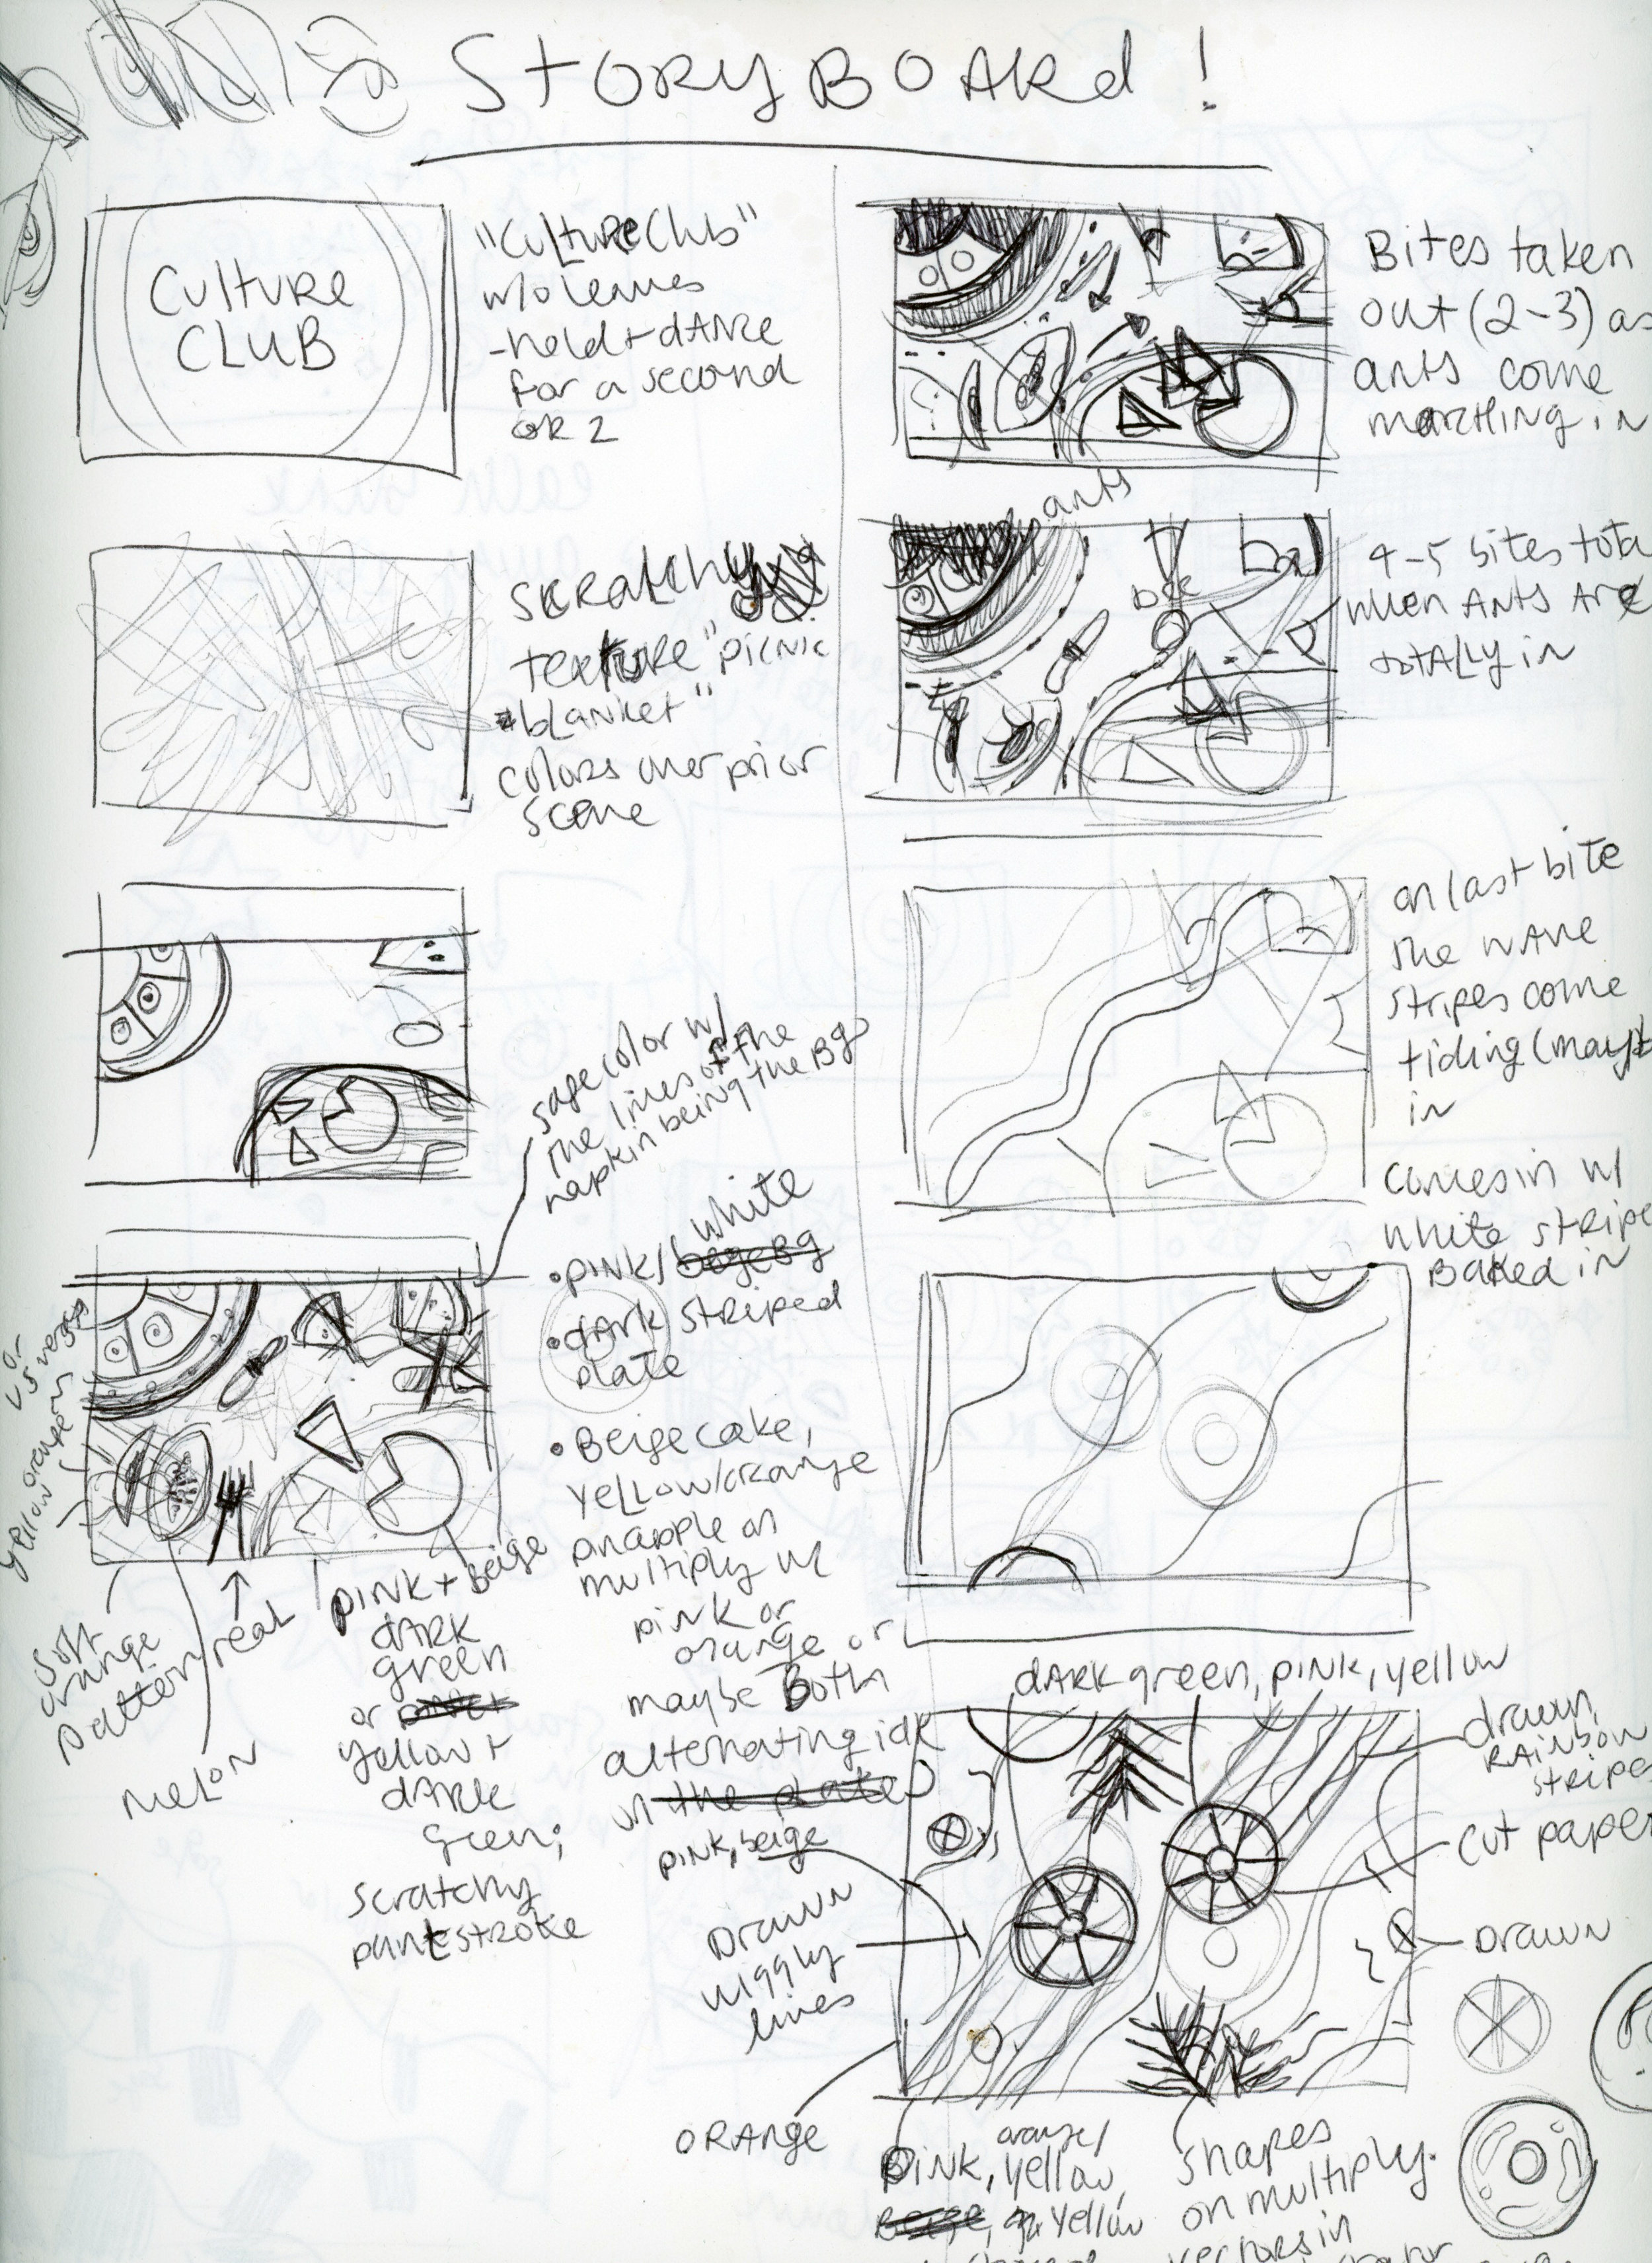 STORYBOARD!
CULTURE
CLUB
"CULTURE Club"
w/o leaves
-hold + dance
for a second
OR 2
SCRATCHY
texture "picnic
blanket"
colors over prior
scene
sage color w/
the lines of the
napkin being the BG
• PINK/white
• dark striped
plate
• Beige cake,
yellow/orange
pineapple on
multiply w/
pink or
orange or
maybe Both
alternating idk
PINK, beige
yellow orange
soft
orange
pattern
real
melon
pink + beige
dark
green
or
yellow +
dark
green;
scratchy
paint stroke
Bites taken
out (2-3) as
ants come
marching in
ants
bee
4-5 bites total
when ANTS ARE
totALLy in
on last bite
the wave
stripes come
tiding (maybe)
in
comes in w/
white stripe
Baked in
dark green, pink, yellow
drawn,
RAINBOW
stripes
cut paper
DRAWN
Drawn
wiggly
lines
ORANGE
orange/
PINK, yellow,
yellow
shapes
on multiply.
vectors in